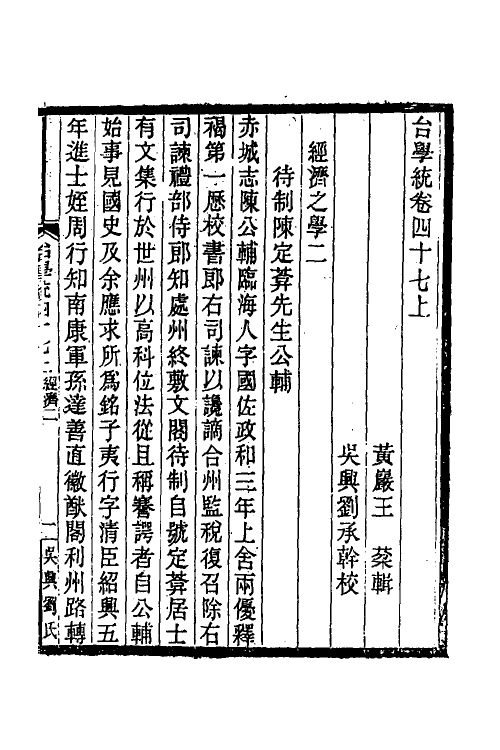 台學統卷四十七上
黃巖王棻輯
吳興劉承幹校
經濟之學二
待制陳定菴先生公輔
赤城志陳公輔臨海人字國佐政和三年上舍兩優釋
褐第一歷校書郎右司諫以讒謫合州監稅復召除右
司諫禮部侍郎知處州終敷文閣待制自號定菴居士
有文集行於世州以高科位法從且稱謇諤者自公輔
始事見國史及余應求所為銘子夷行字清臣紹興五
年進士姪周行知南康軍孫達善直徽猷閣利州路轉
台學統四十七上 經濟二
一 吳興劉氏